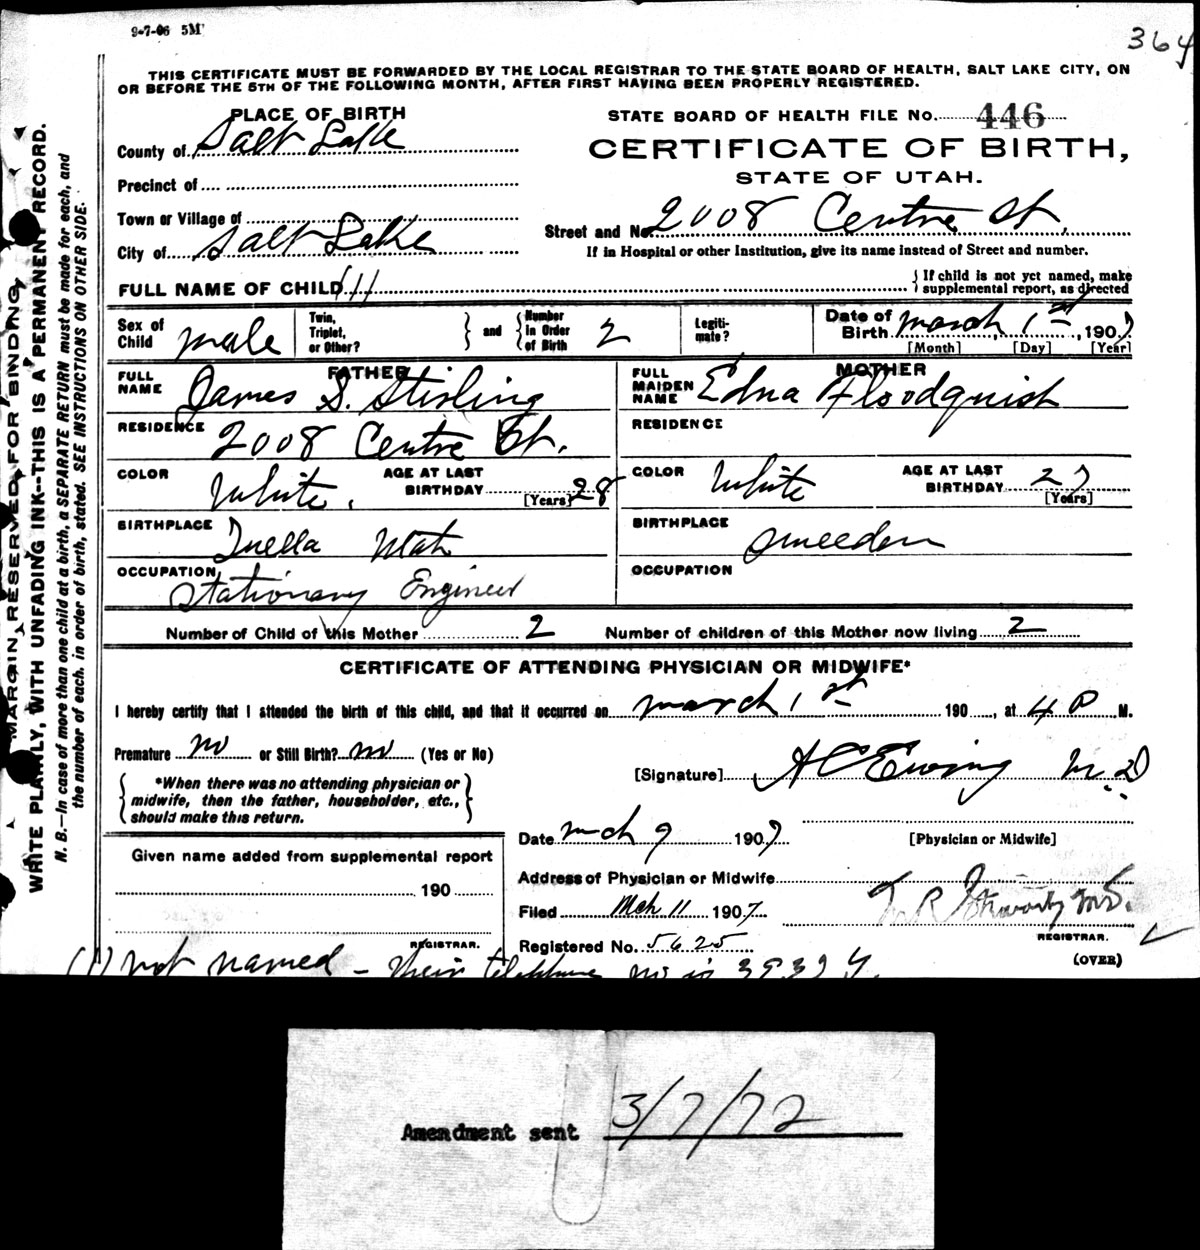 9-7-06 5M
364
THIS CERTIFICATE MUST BE FORWARDED BY THE LOCAL REGISTRAR TO THE STATE BOARD OF HEALTH, SALT LAKE CITY, ON
OR BEFORE THE 5TH OF THE FOLLOWING MONTH, AFTER FIRST HAVING BEEN PROPERLY REGISTERED.
MARGIN RESERVED FOR BINDING
WRITE PLAINLY, WITH UNFADING INK--THIS IS A PERMANENT RECORD.
N. B.—In case of more than one child at a birth, a SEPARATE RETURN must be made for each, and
the number of each, in order of birth, stated. SEE INSTRUCTIONS ON OTHER SIDE.
PLACE OF BIRTH
County of Salt Lake
Precinct of
Town or Village of
City of Salt Lake
STATE BOARD OF HEALTH FILE No. 446
CERTIFICATE OF BIRTH,
STATE OF UTAH.
Street and No. 2008 Centre St.
If in Hospital or other Institution, give its name instead of Street and number.
FULL NAME OF CHILD (1)
If child is not yet named, make
supplemental report, as directed
Sex of Child male
Twin, Triplet, or Other?
and
Number in Order of Birth 2
Legiti-mate?
Date of Birth March 1st, 1907
[Month] [Day] [Year]
FATHER
FULL NAME James S. Stirling
RESIDENCE 2008 Centre St.
COLOR White.
AGE AT LAST BIRTHDAY 28
[Years]
BIRTHPLACE Tuella Utah
OCCUPATION Stationary Engineer
MOTHER
FULL MAIDEN NAME Edna Floodquist
RESIDENCE
COLOR White
AGE AT LAST BIRTHDAY 27
[Years]
BIRTHPLACE Sweeden
OCCUPATION
Number of Child of this Mother 2 Number of children of this Mother now living 2
CERTIFICATE OF ATTENDING PHYSICIAN OR MIDWIFE*
I hereby certify that I attended the birth of this child, and that it occurred on March 1st 190 , at 4 P M.
Premature no or Still Birth? no (Yes or No)
*When there was no attending physician or
midwife, then the father, householder, etc.,
should make this return.
[Signature] A C Ewing M.D
Date Mch 9 1907
[Physician or Midwife]
Given name added from supplemental report
190
REGISTRAR.
Address of Physician or Midwife
Filed Mch 11 1907
Registered No. 5625
REGISTRAR.
(OVER)
(1) not named - their telephone no is
Amendment sent 3/7/72